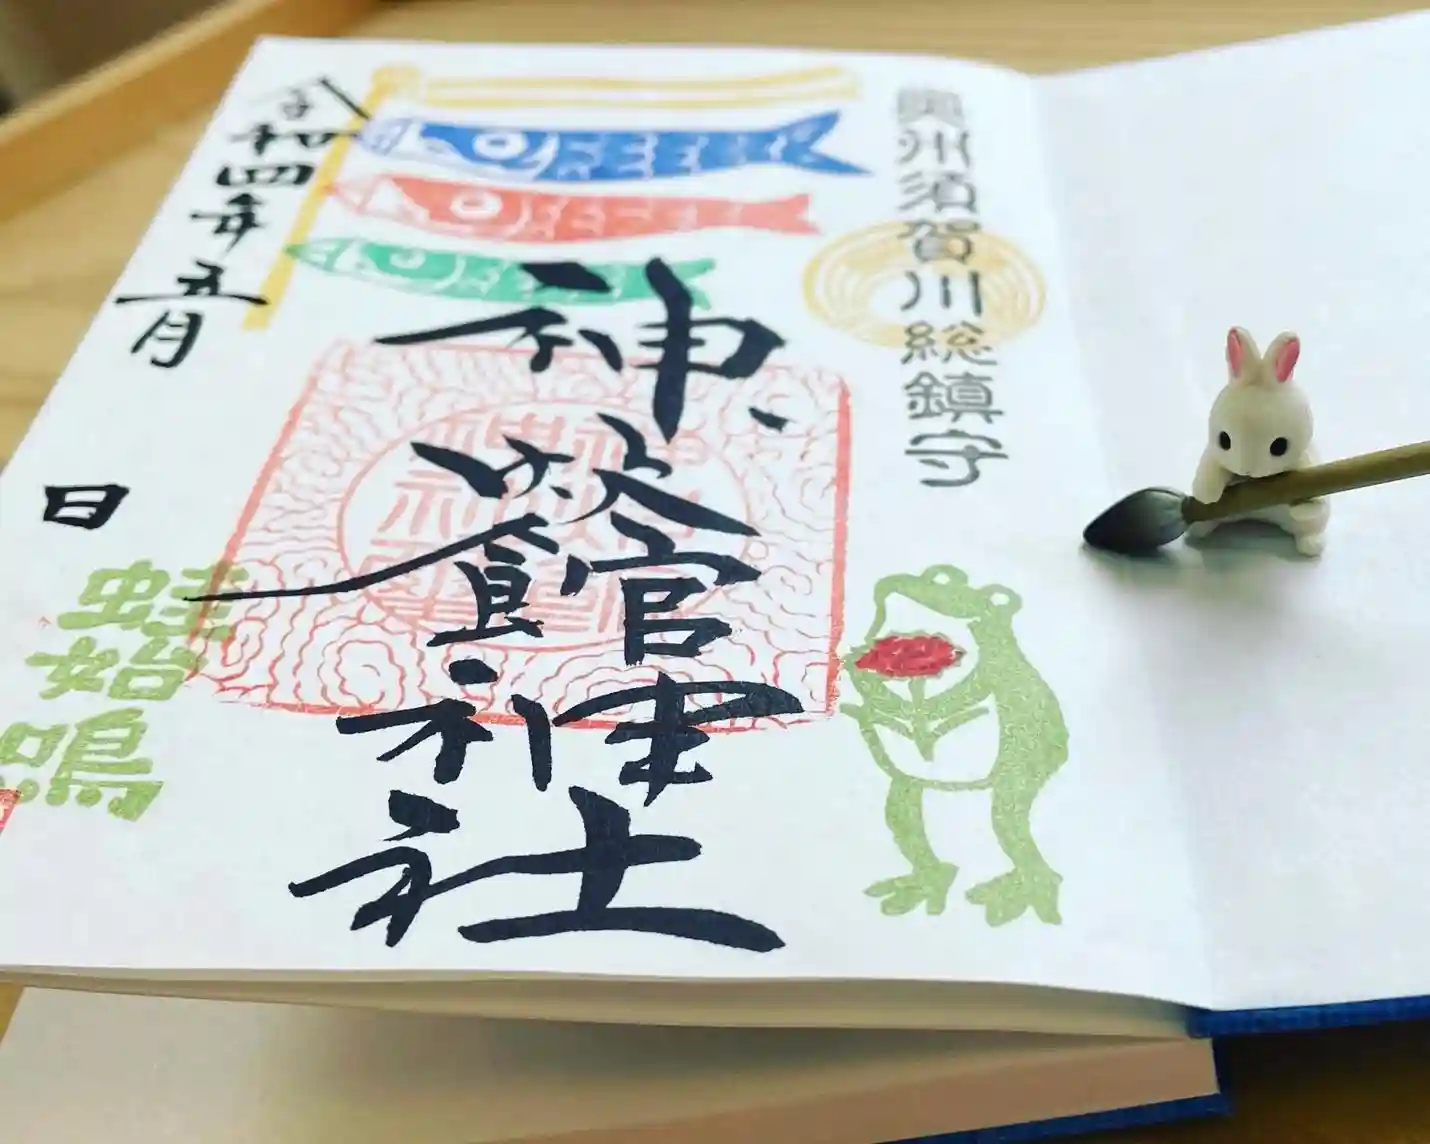 奥州須賀川総鎮守
神炊館神社
令和四年五月 日
蛙始鳴